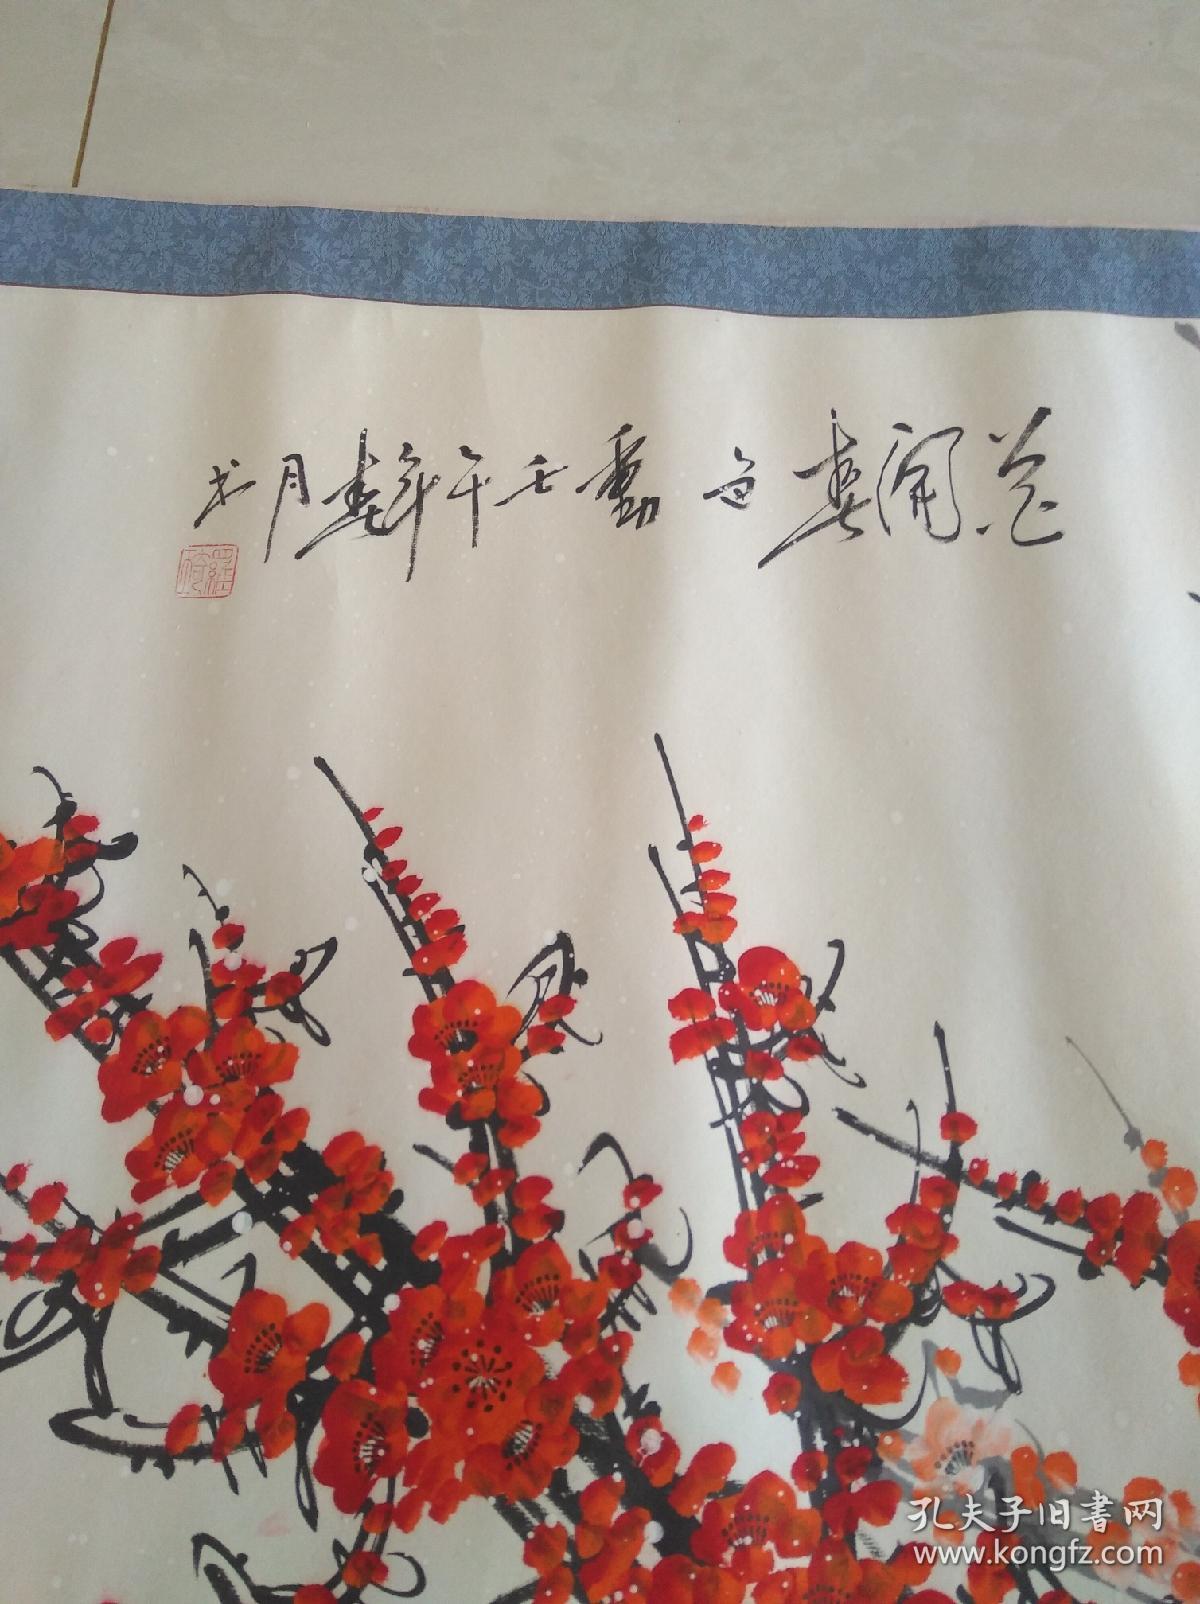 花开春色動壬午年春月书
孔夫子旧書网
www.kongfz.com